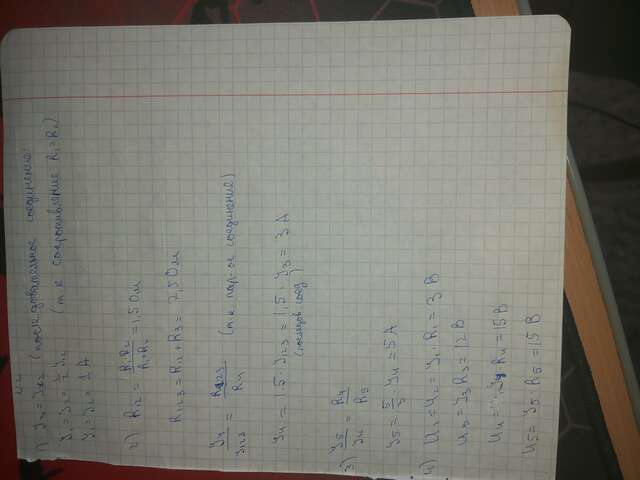 №2
1) I₃ = I₁₂ (последовательное соединение)
I₁ = I₂ = ½ I₁₂ (т к сопротивление R₁=R₂)
I₁ = I₂ = 1 А
2) R₁₂ = R₁R₂/R₁+R₂ = 1,5 Ом
R₁₂₃ = R₁₂ + R₃ =
I₄/I₁₂₃ = R₁₂₃/R₄ (т к пар-ое соединение)
I₄ = 1.5 · I₁₂₃ = 1,5 · I₃ = 3 А
3) I₅/I₄ = R₄/R₅
I₅ = 5/3 I₄ = 5 А
4) U₁ = U₂ = I₁ · R₁ = 3 В
U₃ = I₃ R₃ = 12 В
U₄ = R₄ = 15 В
U₅ = I₅ · R₅ = 15 В